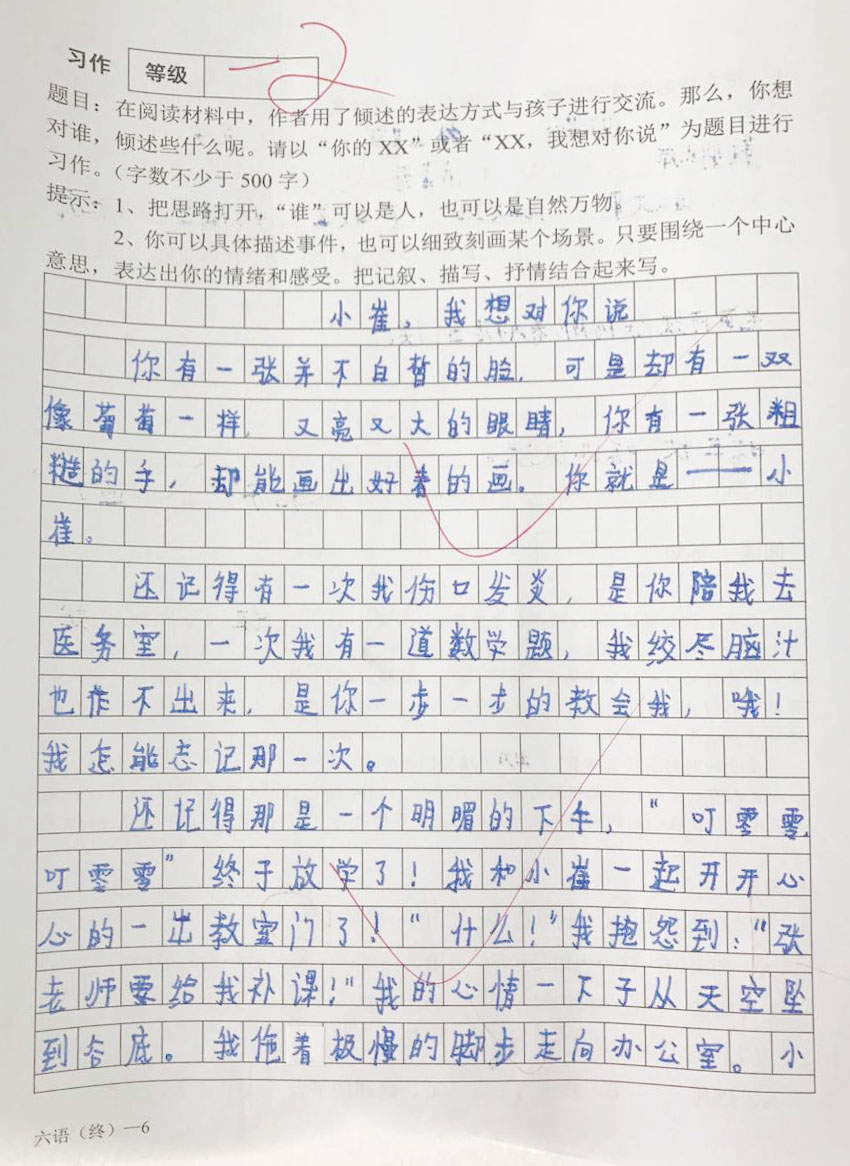 习作 等级 一2
题目：在阅读材料中，作者用了倾述的表达方式与孩子进行交流。那么，你想
对谁，倾述些什么呢。请以“你的XX”或者“XX，我想对你说”为题目进行
习作。（字数不少于500字）
提示：1、把思路打开，“谁”可以是人，也可以是自然万物。
2、你可以具体描述事件，也可以细致刻画某个场景。只要围绕一个中心
意思，表达出你的情绪和感受。把记叙、描写、抒情结合起来写。
小崔，我想对你说
你有一张并不白皙的脸，可是却有一双
像葡萄一样，又亮又大的眼睛，你有一张粗
糙的手，却能画出好看的画。你就是——小
崔。
还记得有一次我伤口发炎，是你陪我去
医务室，一次我有一道数学题，我绞尽脑汁
也作不出来，是你一步一步的教会我，哦！
我怎能忘记那一次。
还记得那是一个明媚的下午，“叮零零，
叮零零”终于放学了！我和小崔一起开开心
心的一出教室门了！“什么！”我抱怨到：“张
老师要给我补课！”我的心情一下子从天空坠
到谷底。我拖着极慢的脚步走向办公室。小
六语（终）—6